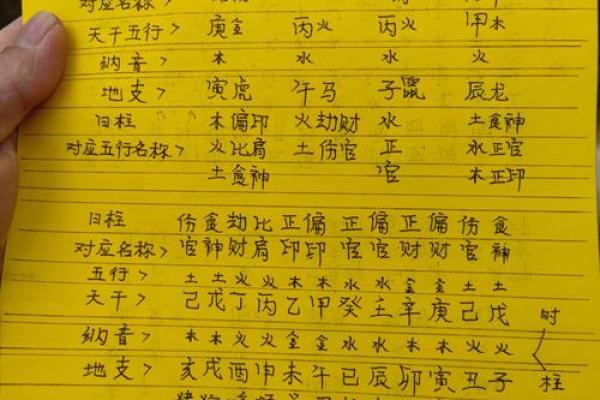 对应名称>
天干五行> 庚金 丙火 丙火 甲木
纳音> 木 水 水 火
地支> 寅虎 午马 子鼠 辰龙
日柱 木偏印 火劫财 水 土食神
对应五行名称> 火比肩 土伤官 正 水正官
土食神 官 木正印
日柱 伤食劫比正偏 正偏正偏伤食
对应名称> 官神财肩印印 官官财财官神
五行> 土土火火木木水水金金土土
天干> 己戊丁丙乙甲癸壬辛庚己戊 时
纳音> 木木火火金金水水木木火火
地支> 亥戌酉申未午巳辰卯寅丑子 柱